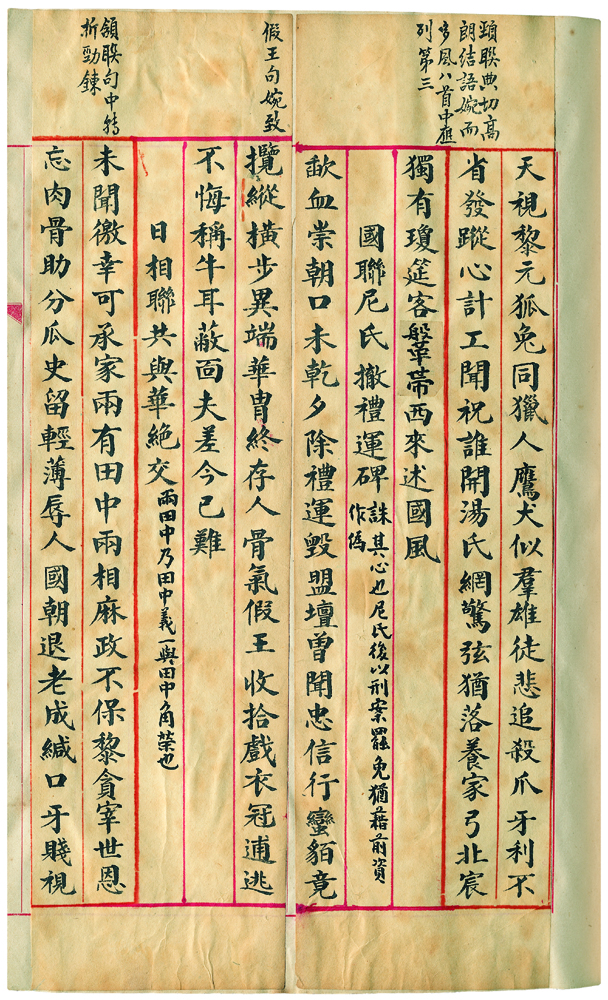 頸聯典切高
朗結語婉而
多風八首中應
列第三
假王句婉致
頷聯句中轉
折勁鍊
天視黎元狐兔同獵人鷹犬似羣雄徒悲追殺爪牙利不
省發蹤心計工聞祝誰開湯氏網驚弦猶落養家弓北宸
獨有瓊筵客鞶帶西來述國風
國聯尼氏撤禮運碑 誅其心也尼氏後以刑案罷免猶藉前資
作偽
歃血崇朝口未乾夕除禮運毀盟壇曾聞忠信行蠻貊竟
攬縱橫步異端華冑終存人骨氣假王收拾戲衣冠逋逃
不悔稱牛耳蔽面夫差今已難
日相聯共與華絶交 兩田中乃田中義一與田中角榮也
未聞徼幸可承家兩有田中兩相麻政不保黎貪宰世恩
忘肉骨助分瓜史留輕薄辱人國朝退老成緘口牙賤視